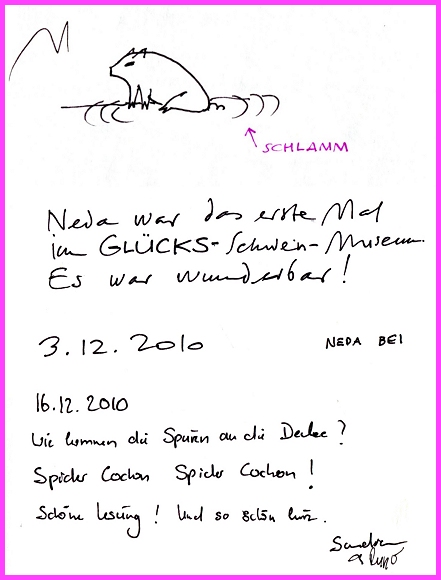 SCHLAMM
Neda war das erste Mal
im GLÜCKS-Schwein-Museum.
Es war wunderbar!
3.12.2010
NEDA BEI
16.12.2010
Wie kommen die Spuren an die Decke?
Spider Cochon Spider Cochon!
Schöne Lesung! Und so schön kurz.